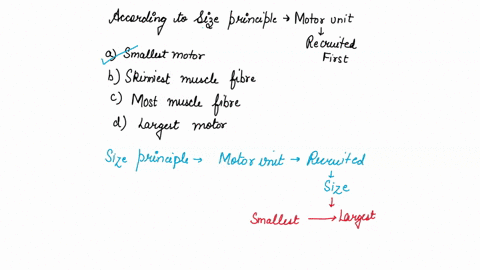 According to Size principle → Motor unit
↓
Recruited
First
a) Smallest motor
b) Skinniest muscle fibre
c) Most muscle fibre
d) Largest motor
Size principle → Motor unit → Recruited
↓
Size
↓
Smallest → Largest